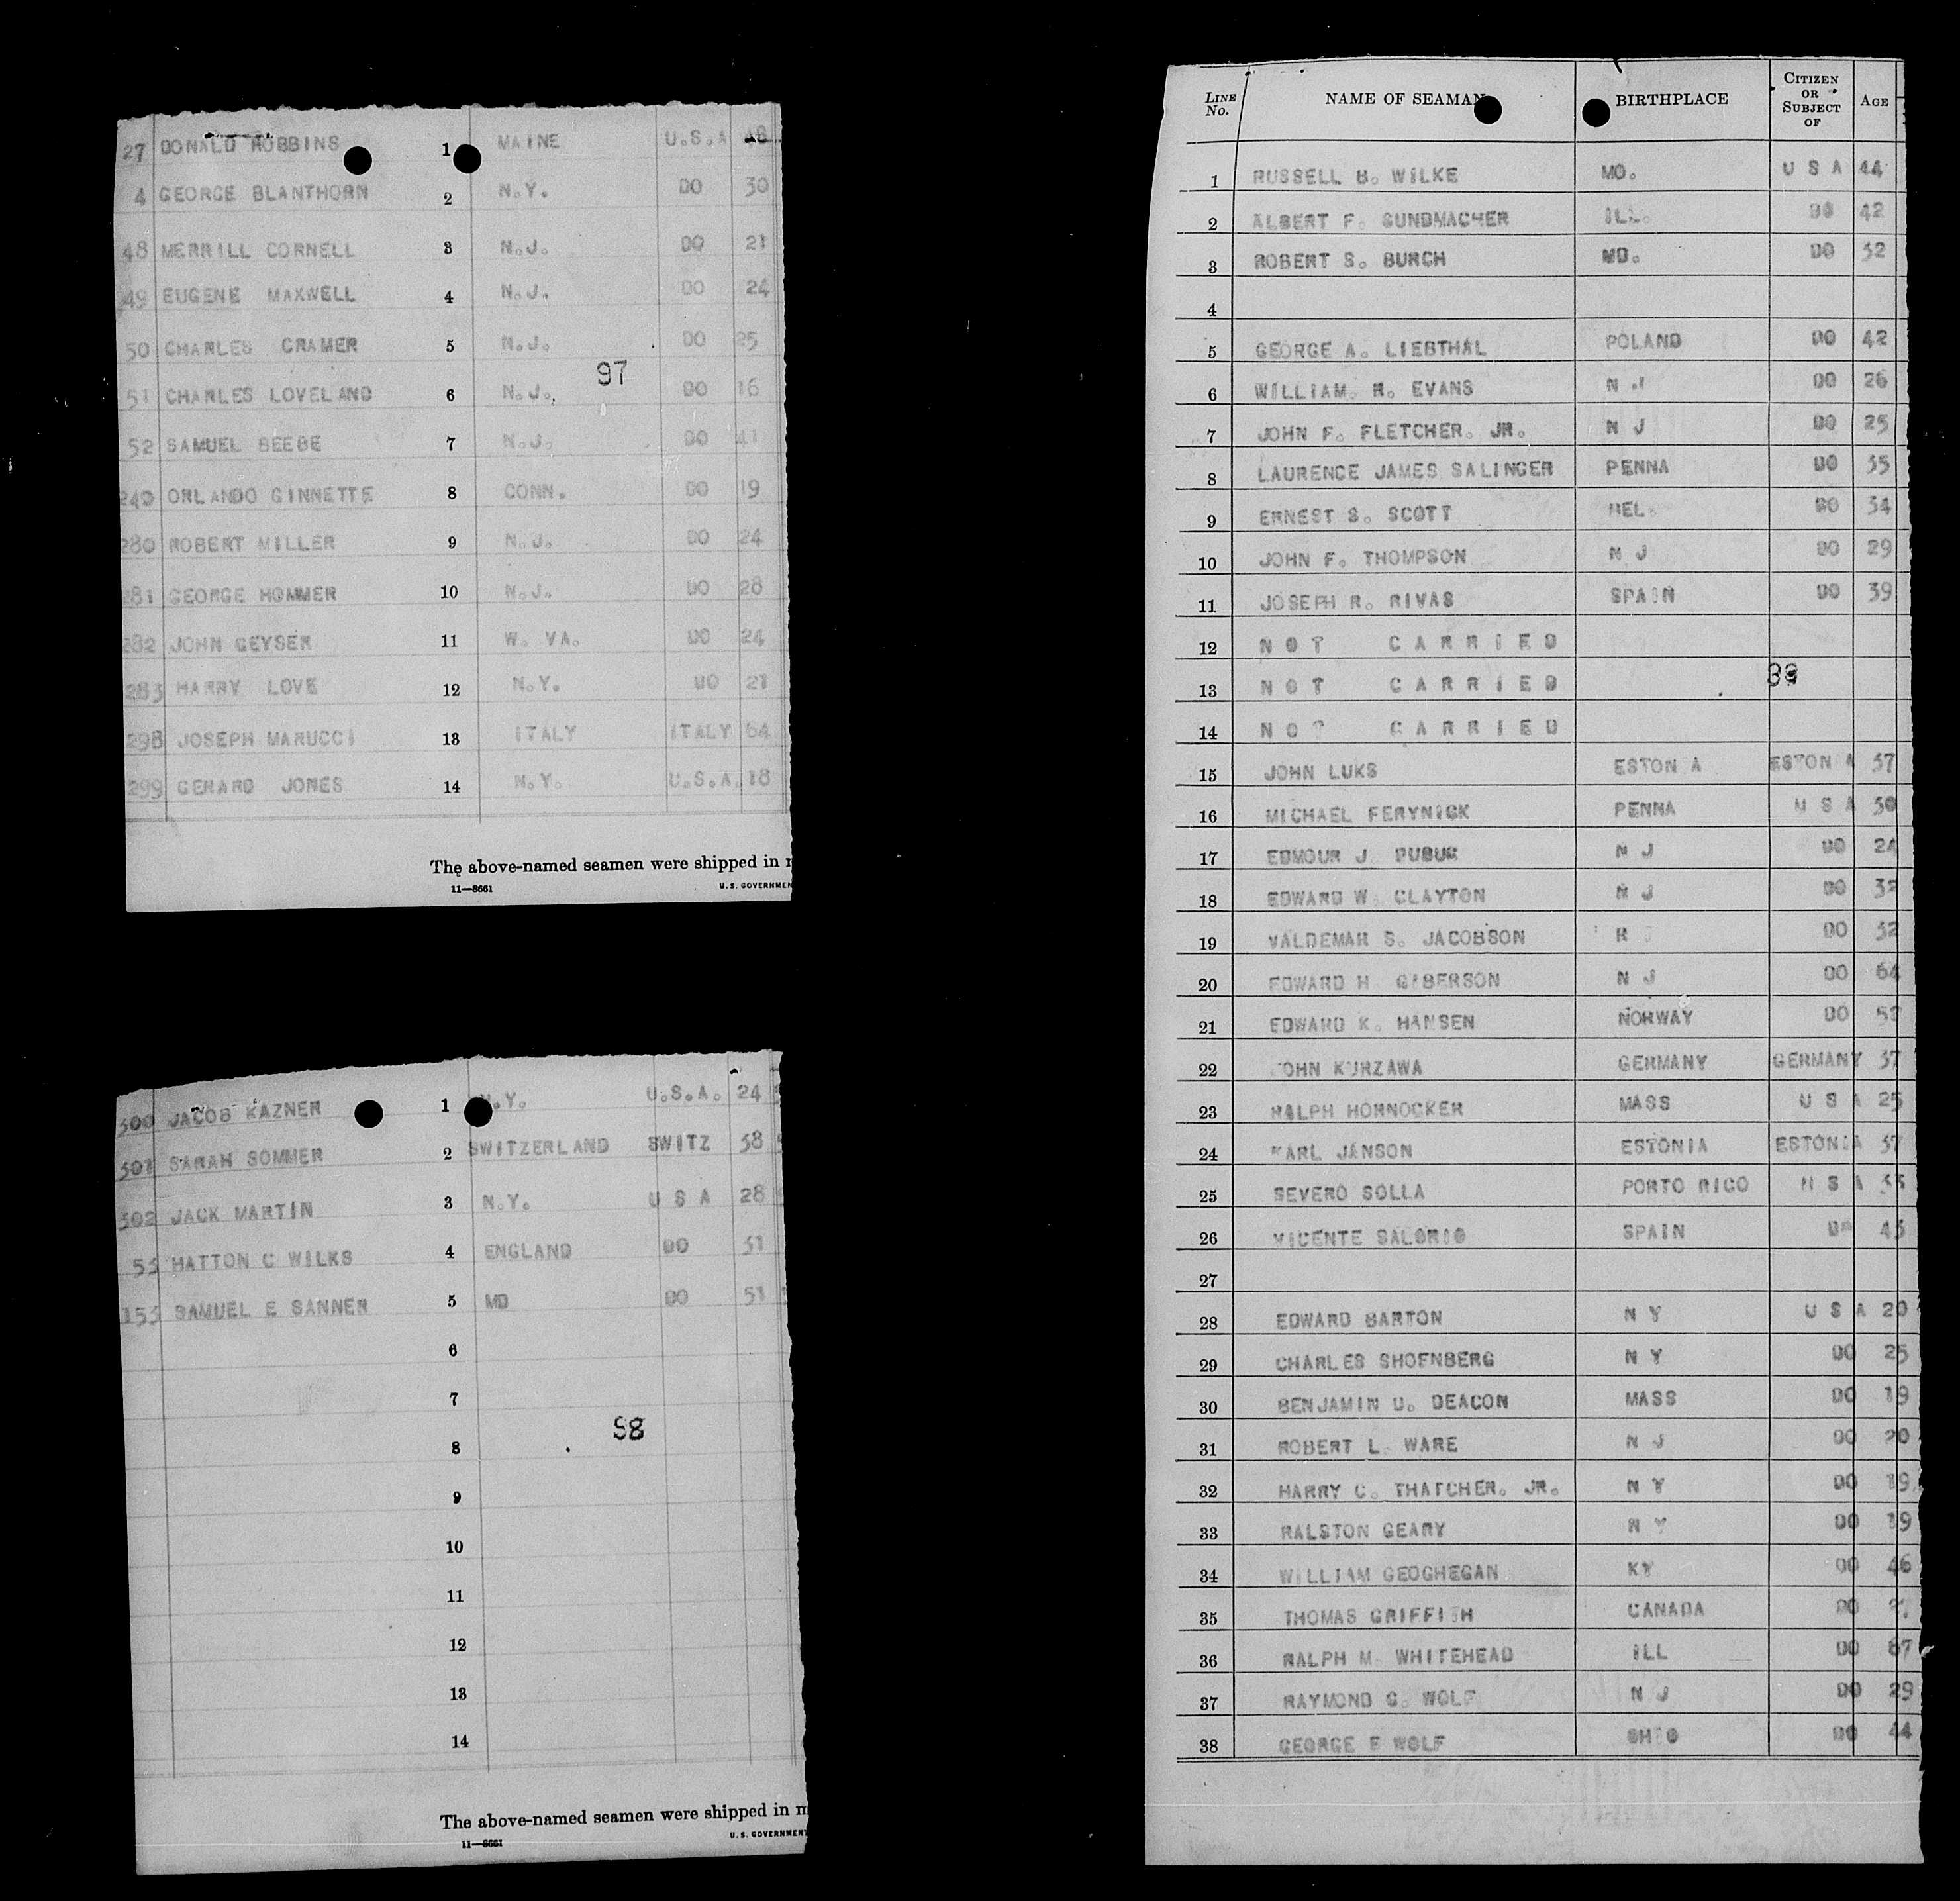 27 DONALD ROBBINS 1 MAINE U.S.A 48
4 GEORGE BLANTHORN 2 N.Y. DO 30
48 MERRILL CORNELL 3 N.J. DO 21
49 EUGENE MAXWELL 4 N.J. DO 24
50 CHARLES CRAMER 5 N.J. DO 25
97
51 CHARLES LOVELAND 6 N.J. DO 16
52 SAMUEL BEEBE 7 N.J. DO 41
240 ORLANDO GINNETTE 8 CONN. DO 19
280 ROBERT MILLER 9 N.J. DO 24
281 GEORGE HOMMER 10 N.J. DO 28
282 JOHN GEYSER 11 W. VA. DO 24
283 HARRY LOVE 12 N.Y. DO 21
298 JOSEPH MARUCCI 13 ITALY ITALY 64
299 GERARD JONES 14 N.Y. U.S.A. 18
The above-named seamen were shipped in
11—8661 U.S. GOVERNMEN
300 JACOB KAZNER 1 N.Y. U.S.A. 24
301 SARAH SOMMER 2 SWITZERLAND SWITZ 38
302 JACK MARTIN 3 N.Y. U S A 28
53 HATTON C WILKS 4 ENGLAND DO 31
153 SAMUEL E SANNER 5 MD DO 51
6
7
98
8
9
10
11
12
13
14
The above-named seamen were shipped in
11—8661 U.S. GOVERNMENT
LINE No. NAME OF SEAMAN BIRTHPLACE CITIZEN OR SUBJECT OF AGE
1 RUSSELL B. WILKE MO. U S A 44
2 ALBERT F. SUNDMACHER ILL. DO 42
3 ROBERT S. BURCH MD. DO 32
4
5 GEORGE A. LIEBTHAL POLAND DO 42
6 WILLIAM. R. EVANS N J DO 26
7 JOHN F. FLETCHER. JR. N J DO 25
8 LAURENCE JAMES SALINGER PENNA DO 35
9 ERNEST S. SCOTT DEL. DO 34
10 JOHN F. THOMPSON N J DO 29
11 JOSEPH R. RIVAS SPAIN DO 39
12 NOT CARRIED
89
13 NOT CARRIED
14 NOT CARRIED
15 JOHN LUKS ESTON A ESTON A 37
16 MICHAEL FERYNICK PENNA U S A 30
17 EDMOUR J. DUBUK N J DO 24
18 EDWARD W. CLAYTON N J DO 32
19 VALDEMAR S. JACOBSON DO 32
20 EDWARD H. GIBERSON N J DO 64
21 EDWARD K. HANSEN NORWAY DO
22 JOHN KURZAWA GERMANY GERMANY 37
23 RALPH HORNOCKER MASS U S A 25
24 KARL JANSON ESTONIA ESTONIA 37
25 SEVERO SOLLA PORTO RICO U S A
26 VICENTE SALORIO SPAIN DO 43
27
28 EDWARD BARTON N Y U S A 20
29 CHARLES SHOENBERG N Y DO 25
30 BENJAMIN D. DEACON MASS DO 19
31 ROBERT L. WARE N J DO 20
32 HARRY C. THATCHER. JR. N Y DO 19
33 RALSTON GEARY N Y DO 19
34 WILLIAM GEOGHEGAN KY DO 46
35 THOMAS GRIFFITH CANADA DO
36 RALPH M. WHITEHEAD ILL DO 67
37 RAYMOND G. WOLF N J DO 29
38 GEORGE E WOLF OHIO DO 44